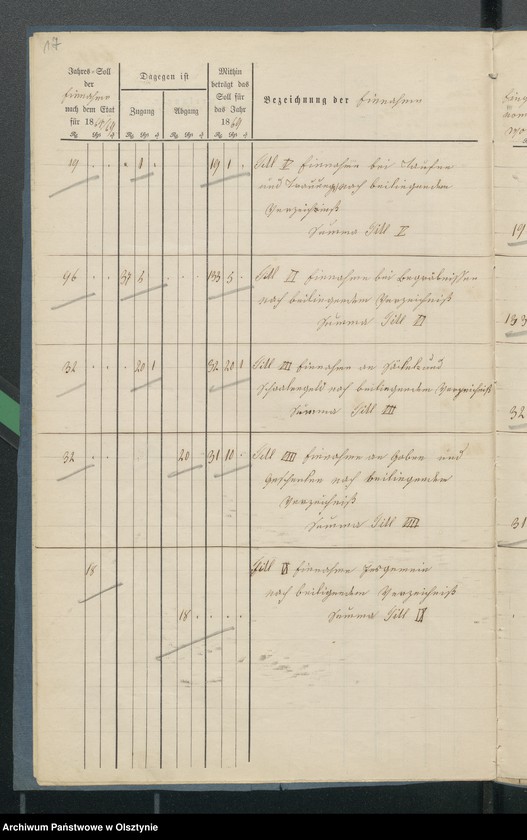 17
Jahres-Soll
der
Einnahme
nach dem Etat
für 18
Dagegen ist
Zugang
Abgang
Mithin
beträgt das
Soll für
das Jahr
1869
Bezeichnung der Einnahme
19 . . 1 . 19 1 . Titl V Einnahme bei Taufen
und Trauungen nach beiliegendem
Verzeichniß
Summa Titl V
96 . . 37 5 . . . . 133 5 . Titl VI Einnahme bei Begräbnissen
nach beiliegendem Verzeichniß
Summa Titl VI
133
32 . . . 20 1 32 20 1 Titl VII Einnahme an Säckel und
Schaalengeld nach beiliegendem Verzeichniß
Summa Titl VII
32
32 . . 20 . 31 10 . Titl VIII Einnahme an Gaben und
Geschenken nach beiliegendem
Verzeichniß
Summa Titl VIII
31
18 Titl IX Einnahme Insgemein
nach beiligendem Verzeichniß
18 . . . . Summa Titl IX
Archiwum Państwowe w Olsztynie